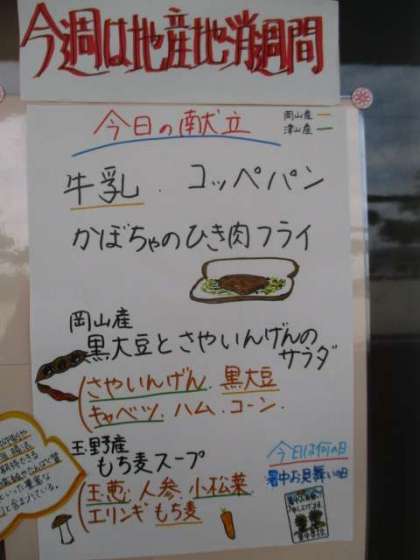 今週は地産地消週間
今日の献立
岡山産
津山産
牛乳.コッペパン
かぼちゃのひき肉フライ
岡山産
黒大豆とさやいんげんの
サラダ
(さやいんげん.黒大豆
キャベツ.ハム.コーン.
玉野産
もち麦スープ
(玉葱.人参.小松菜
エリンギ もち麦
今日は何の日
暑中お見舞いの日